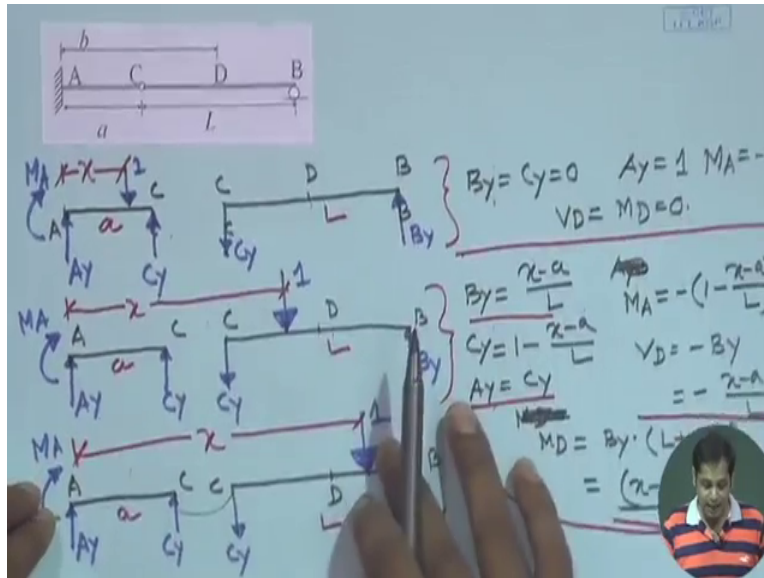 b
A C D B
a L
MA x 1
A a C
AY CY
C D B
L
CY BY
By = Cy = 0 Ay = 1 MA = -
VD = MD = 0.
MA x 1
A C
a
AY CY
C D B
L
CY BY
By = x-a / L
MA = -(1 - x-a / L
Cy = 1 - x-a / L
VD = - By
Ay = Cy
= - x-a / L
MA x 1
A C C
a D
L
AY CY CY
MD = By. (L+
= (x-